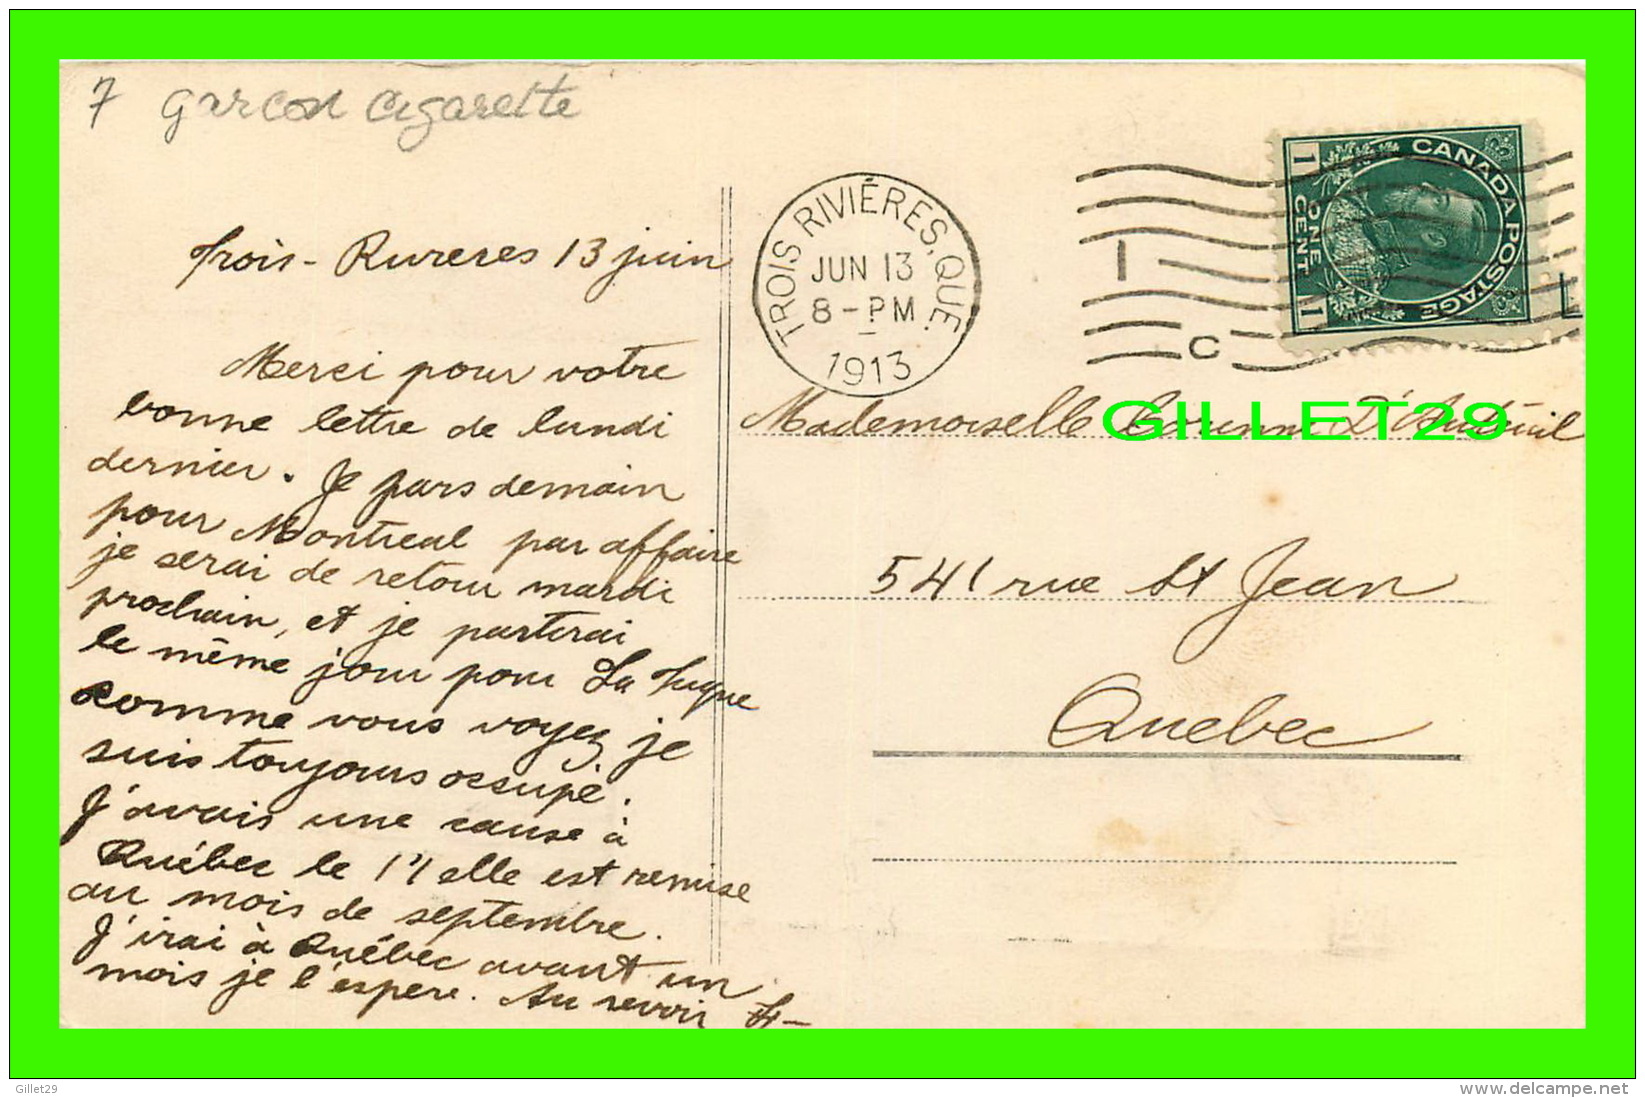 7 garcon cigarette
Trois-Rivieres 13 juin
Merci pour votre
bonne lettre de lundi
dernier. Je pars demain
pour Montreal par affaire
je serai de retour mardi
prochain, et je partirai
le même jour pour La Tuque
Comme vous voyez, je
suis toujours occupé.
J'avais une cause à
Québec le 17 elle est remise
au mois de septembre.
J'irai à Québec avant un
mois je l'espere. Au revoir
TROIS RIVIÉRES, QUE.
JUN 13
8 - PM
1913
I
C
L
CANADA POSTAGE
1 ONE CENT 1
Mademoiselle Corinne D'Auteuil
GILLET29
541 rue St Jean
Quebec
Gillet29
www.delcampe.net